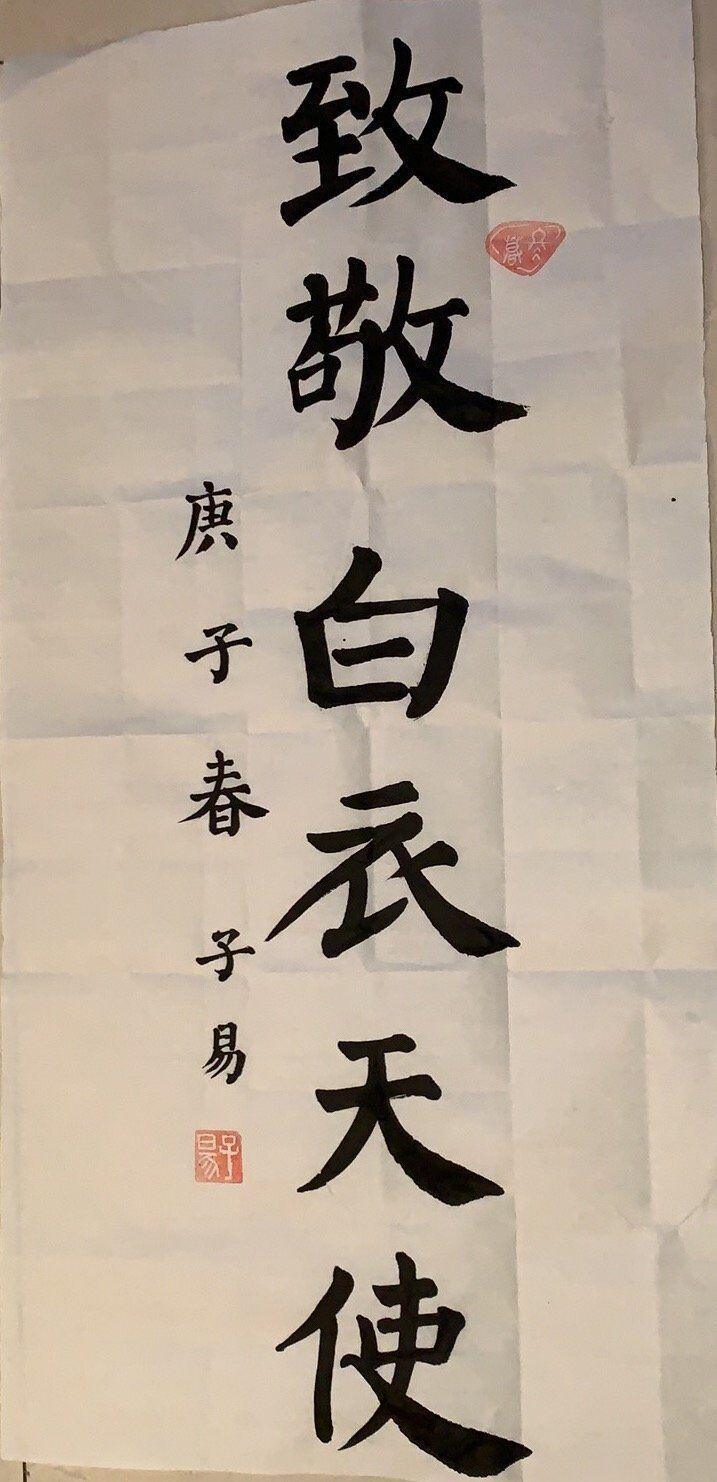 致敬白衣天使
庚子春子易
子易